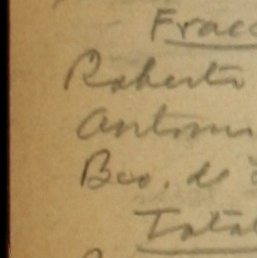 Frac
Roberto
Antonio
Bco. de
Total